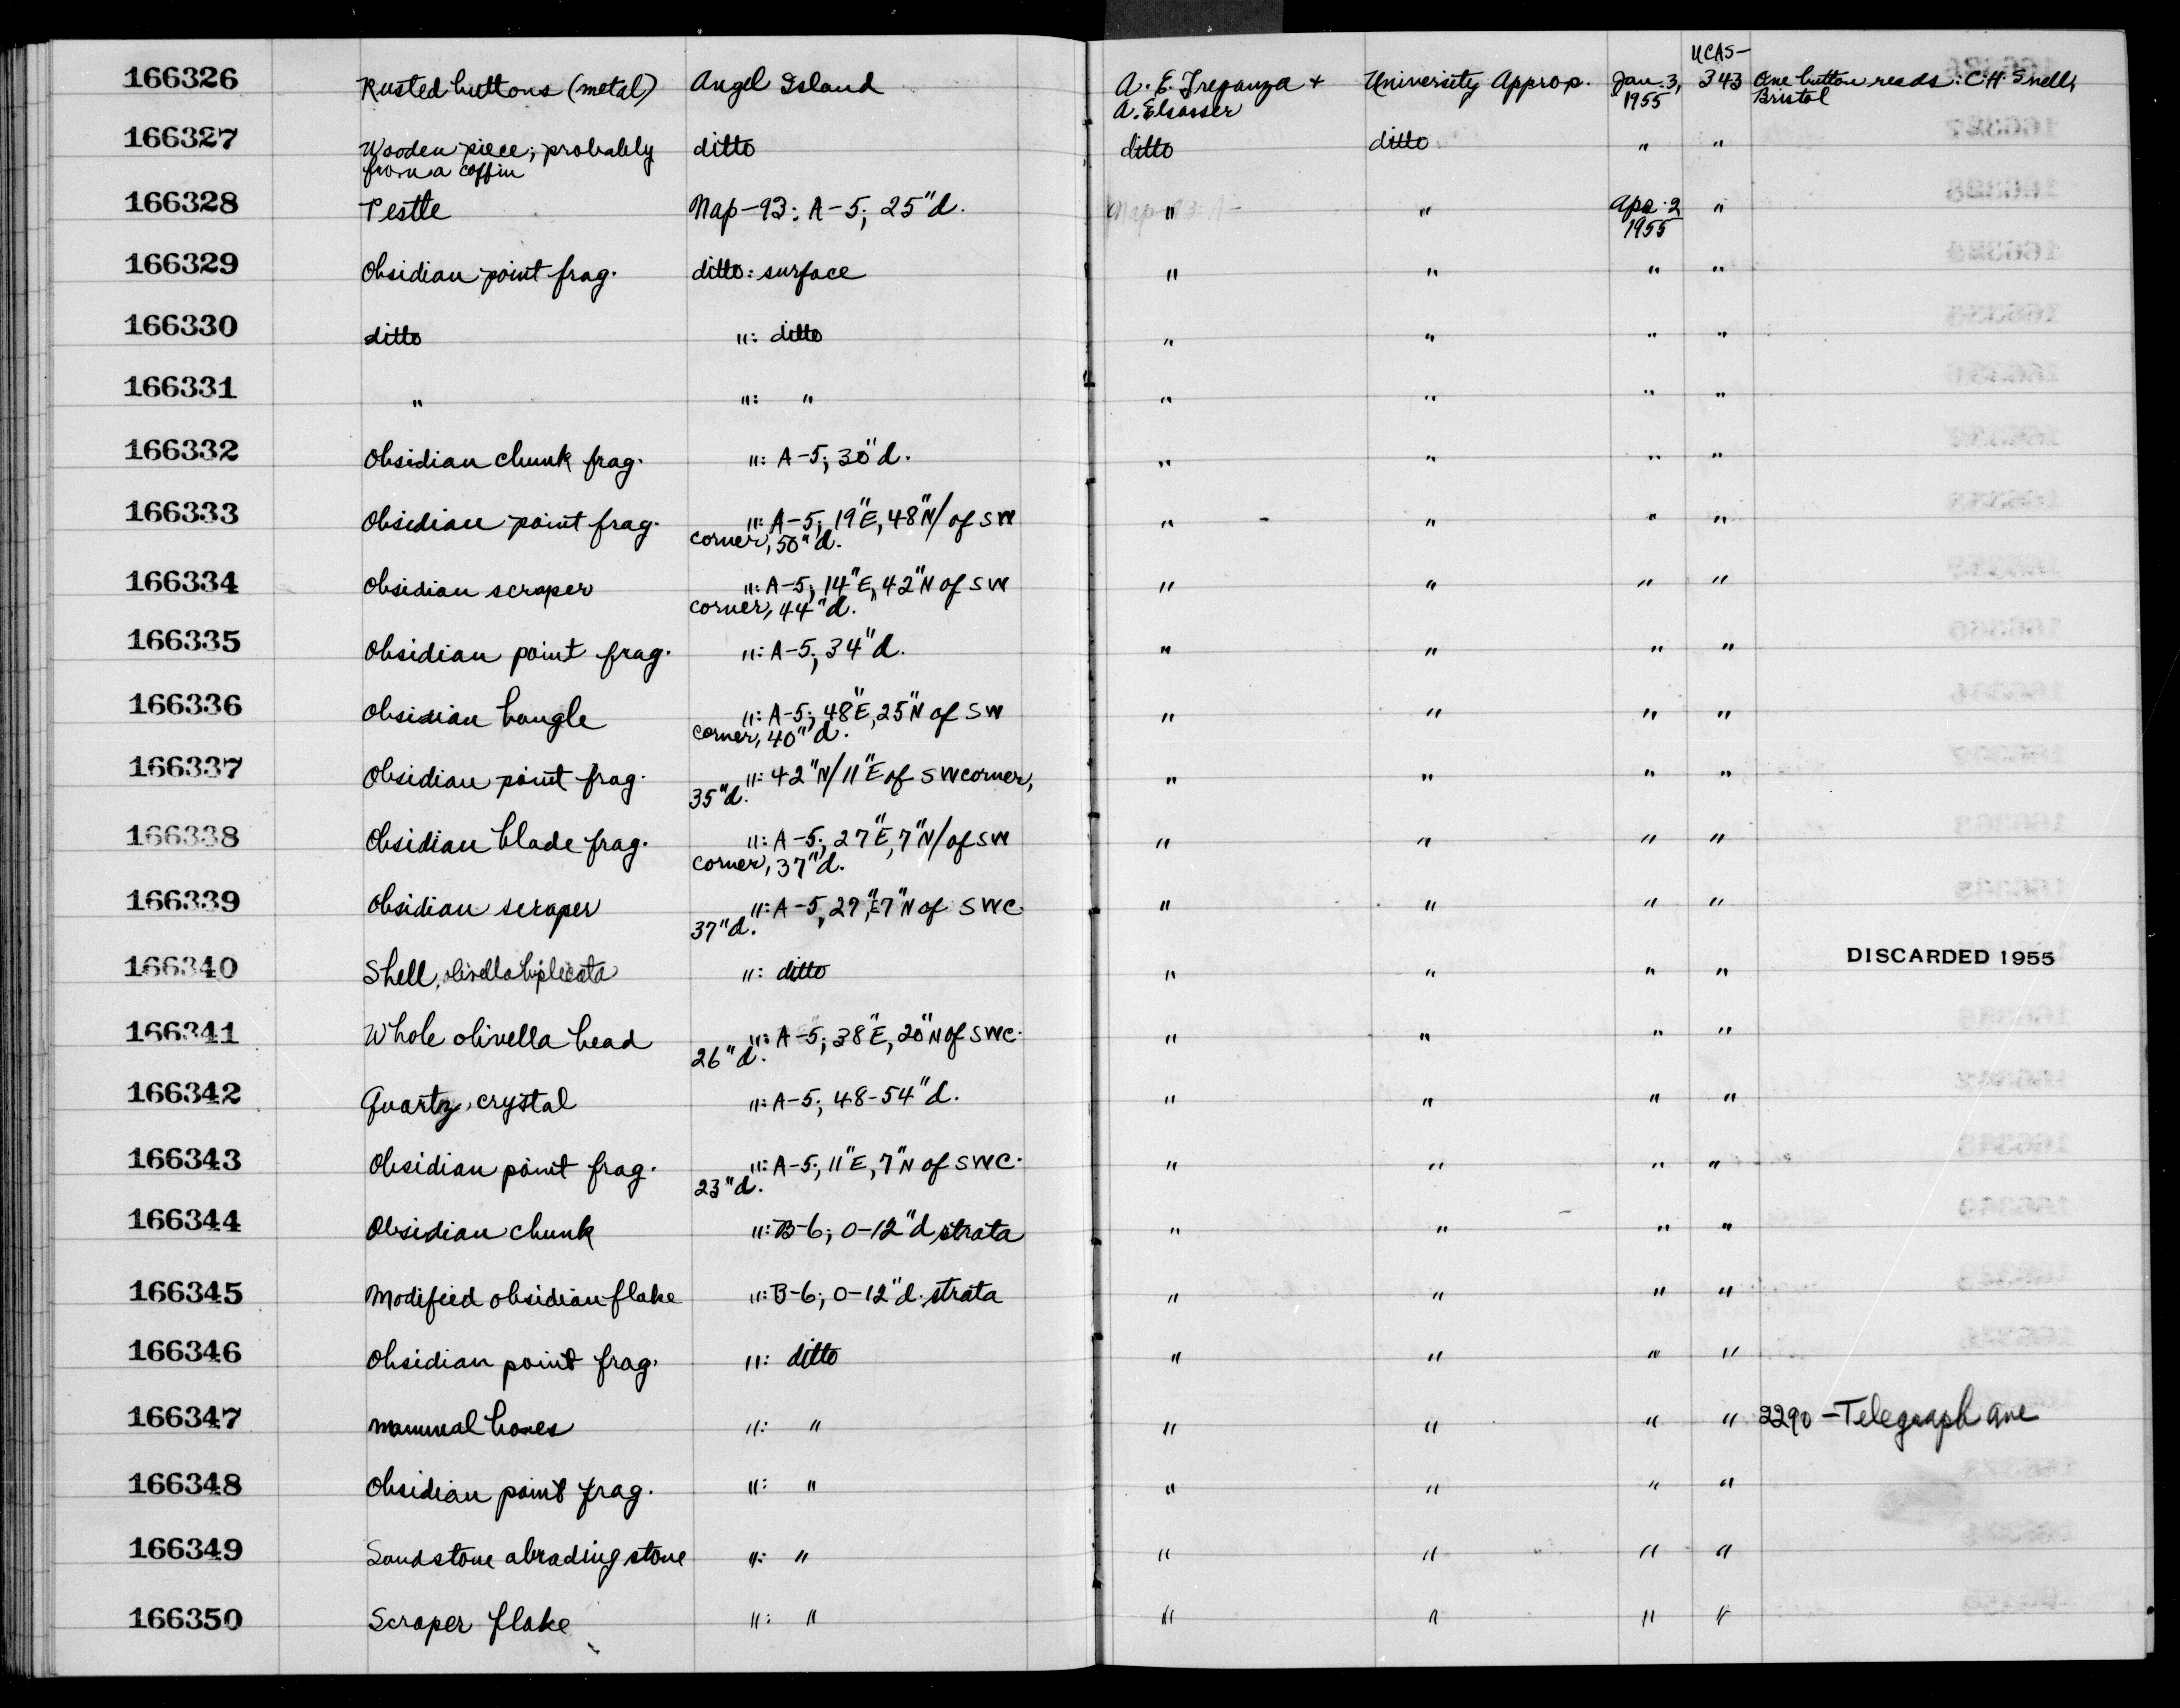 UCAS-
166326 Rusted buttons (metal) Angel Island A. E. Treganza + University Approp. Jan. 3, 343 One button reads: C.H. Snell,
A. Elsasser 1955 Bristol
166327 Wooden piece; probably ditto ditto ditto " "
from a coffin
166328 Pestle Nap-93: A-5; 25"d. " " Apr. 2 "
1955
166329 Obsidian point frag. ditto: surface " " " "
166330 ditto ": ditto " " " "
166331 " ": " " " " "
166332 Obsidian chunk frag. ": A-5; 30"d. " " " "
166333 Obsidian point frag. ": A-5; 19"E, 48"N/ of SW " " " "
corner, 50"d.
166334 Obsidian scraper ": A-5; 14"E, 42"N of SW " " " "
corner, 44"d.
166335 Obsidian point frag. ": A-5; 34"d. " " " "
166336 Obsidian bangle ": A-5; 48"E, 25"N of SW " " " "
corner, 40"d.
166337 Obsidian point frag. ": 42"N/11"E of SW corner, " " " "
35"d.
166338 Obsidian blade frag. ": A-5; 27"E, 7"N/ of SW " " " "
corner, 37"d.
166339 Obsidian scraper ": A-5, 29"E, 7"N of SWC. " " " "
37"d.
166340 Shell, olivella biplicata ": ditto " " " " DISCARDED 1955
166341 Whole olivella bead ": A-5; 38"E, 20"N of SWC. " " " "
26"d.
166342 Quartz crystal ": A-5; 48-54"d. " " " "
166343 Obsidian point frag. ": A-5; 11"E, 7"N of SWC. " " " "
23"d.
166344 Obsidian chunk ": B-6; 0-12"d strata " " " "
166345 Modified obsidian flake ": B-6; 0-12"d. strata " " " "
166346 Obsidian point frag. ": ditto " " " "
166347 Mammal bones ": " " " " " 2290-Telegraph Ave
166348 Obsidian point frag. ": " " " " "
166349 Sandstone abrading stone ": " " " " "
166350 Scraper flake ": " " " " "